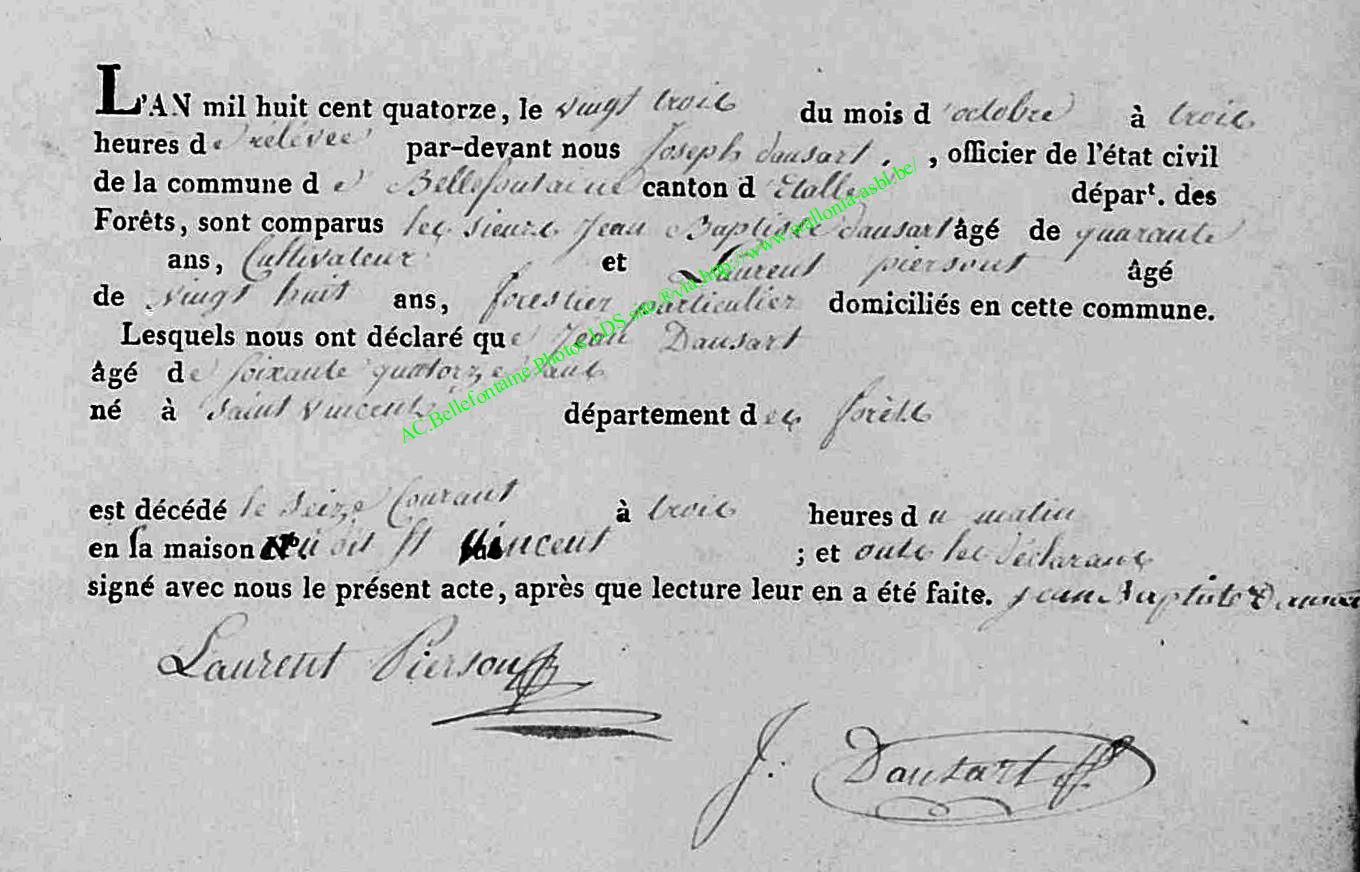 L'AN mil huit cent quatorze, le vingt trois du mois d'octobre à trois
heures de relevée par-devant nous Joseph dausart, , officier de l'état civil
de la commune de Bellefontaine canton d'Etalleépar<sup>t</sup>. des
Forêts, sont comparus les sieurs Jean Baptiste dausart âgé de quarante
ans, Cultivateur et Laurent piersont âgé
de vingt huit ans, forestier particulier domiciliés en cette commune.
Lesquels nous ont déclaré que Jean Dausart
âgé de soixante quatorze ans
né à Saint vincent département des forêts
est décédé le seize Courant à trois heures du matin
en sa maison N° dit St vincent ; et onts les déclarans
signé avec nous le présent acte, après que lecture leur en a été faite. jean baptiste Dausart
Laurent Pierson
J. Dausart
AC.Bellefontaine.Photos LDS site ®via http://www.wallonia-asbl.be/